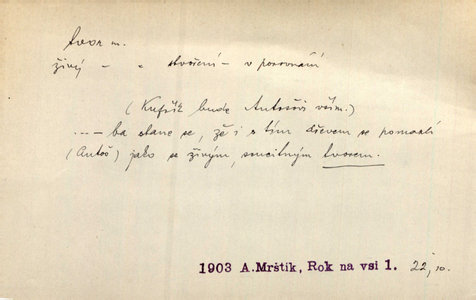 tvor m.
živý – „ stvoření – v porovnání
( Kufřík bude Antošovi vším.)
--- – ba stane se, že i s tím dřevem se pomazlí
(Antoš) jako se živým, soucitným tvorem.
1903 A.Mrštík, Rok na vsi 1. 22, 10.